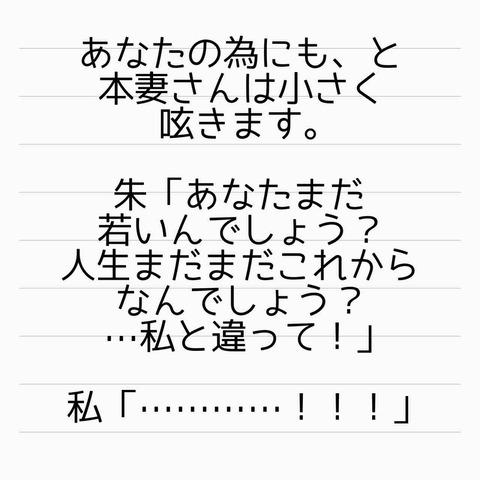 あなたの為にも、と
本妻さんは小さく
呟きます。
朱「あなたまだ
若いんでしょう？
人生まだまだこれから
なんでしょう？
…私と違って！」
私「…………！！！」